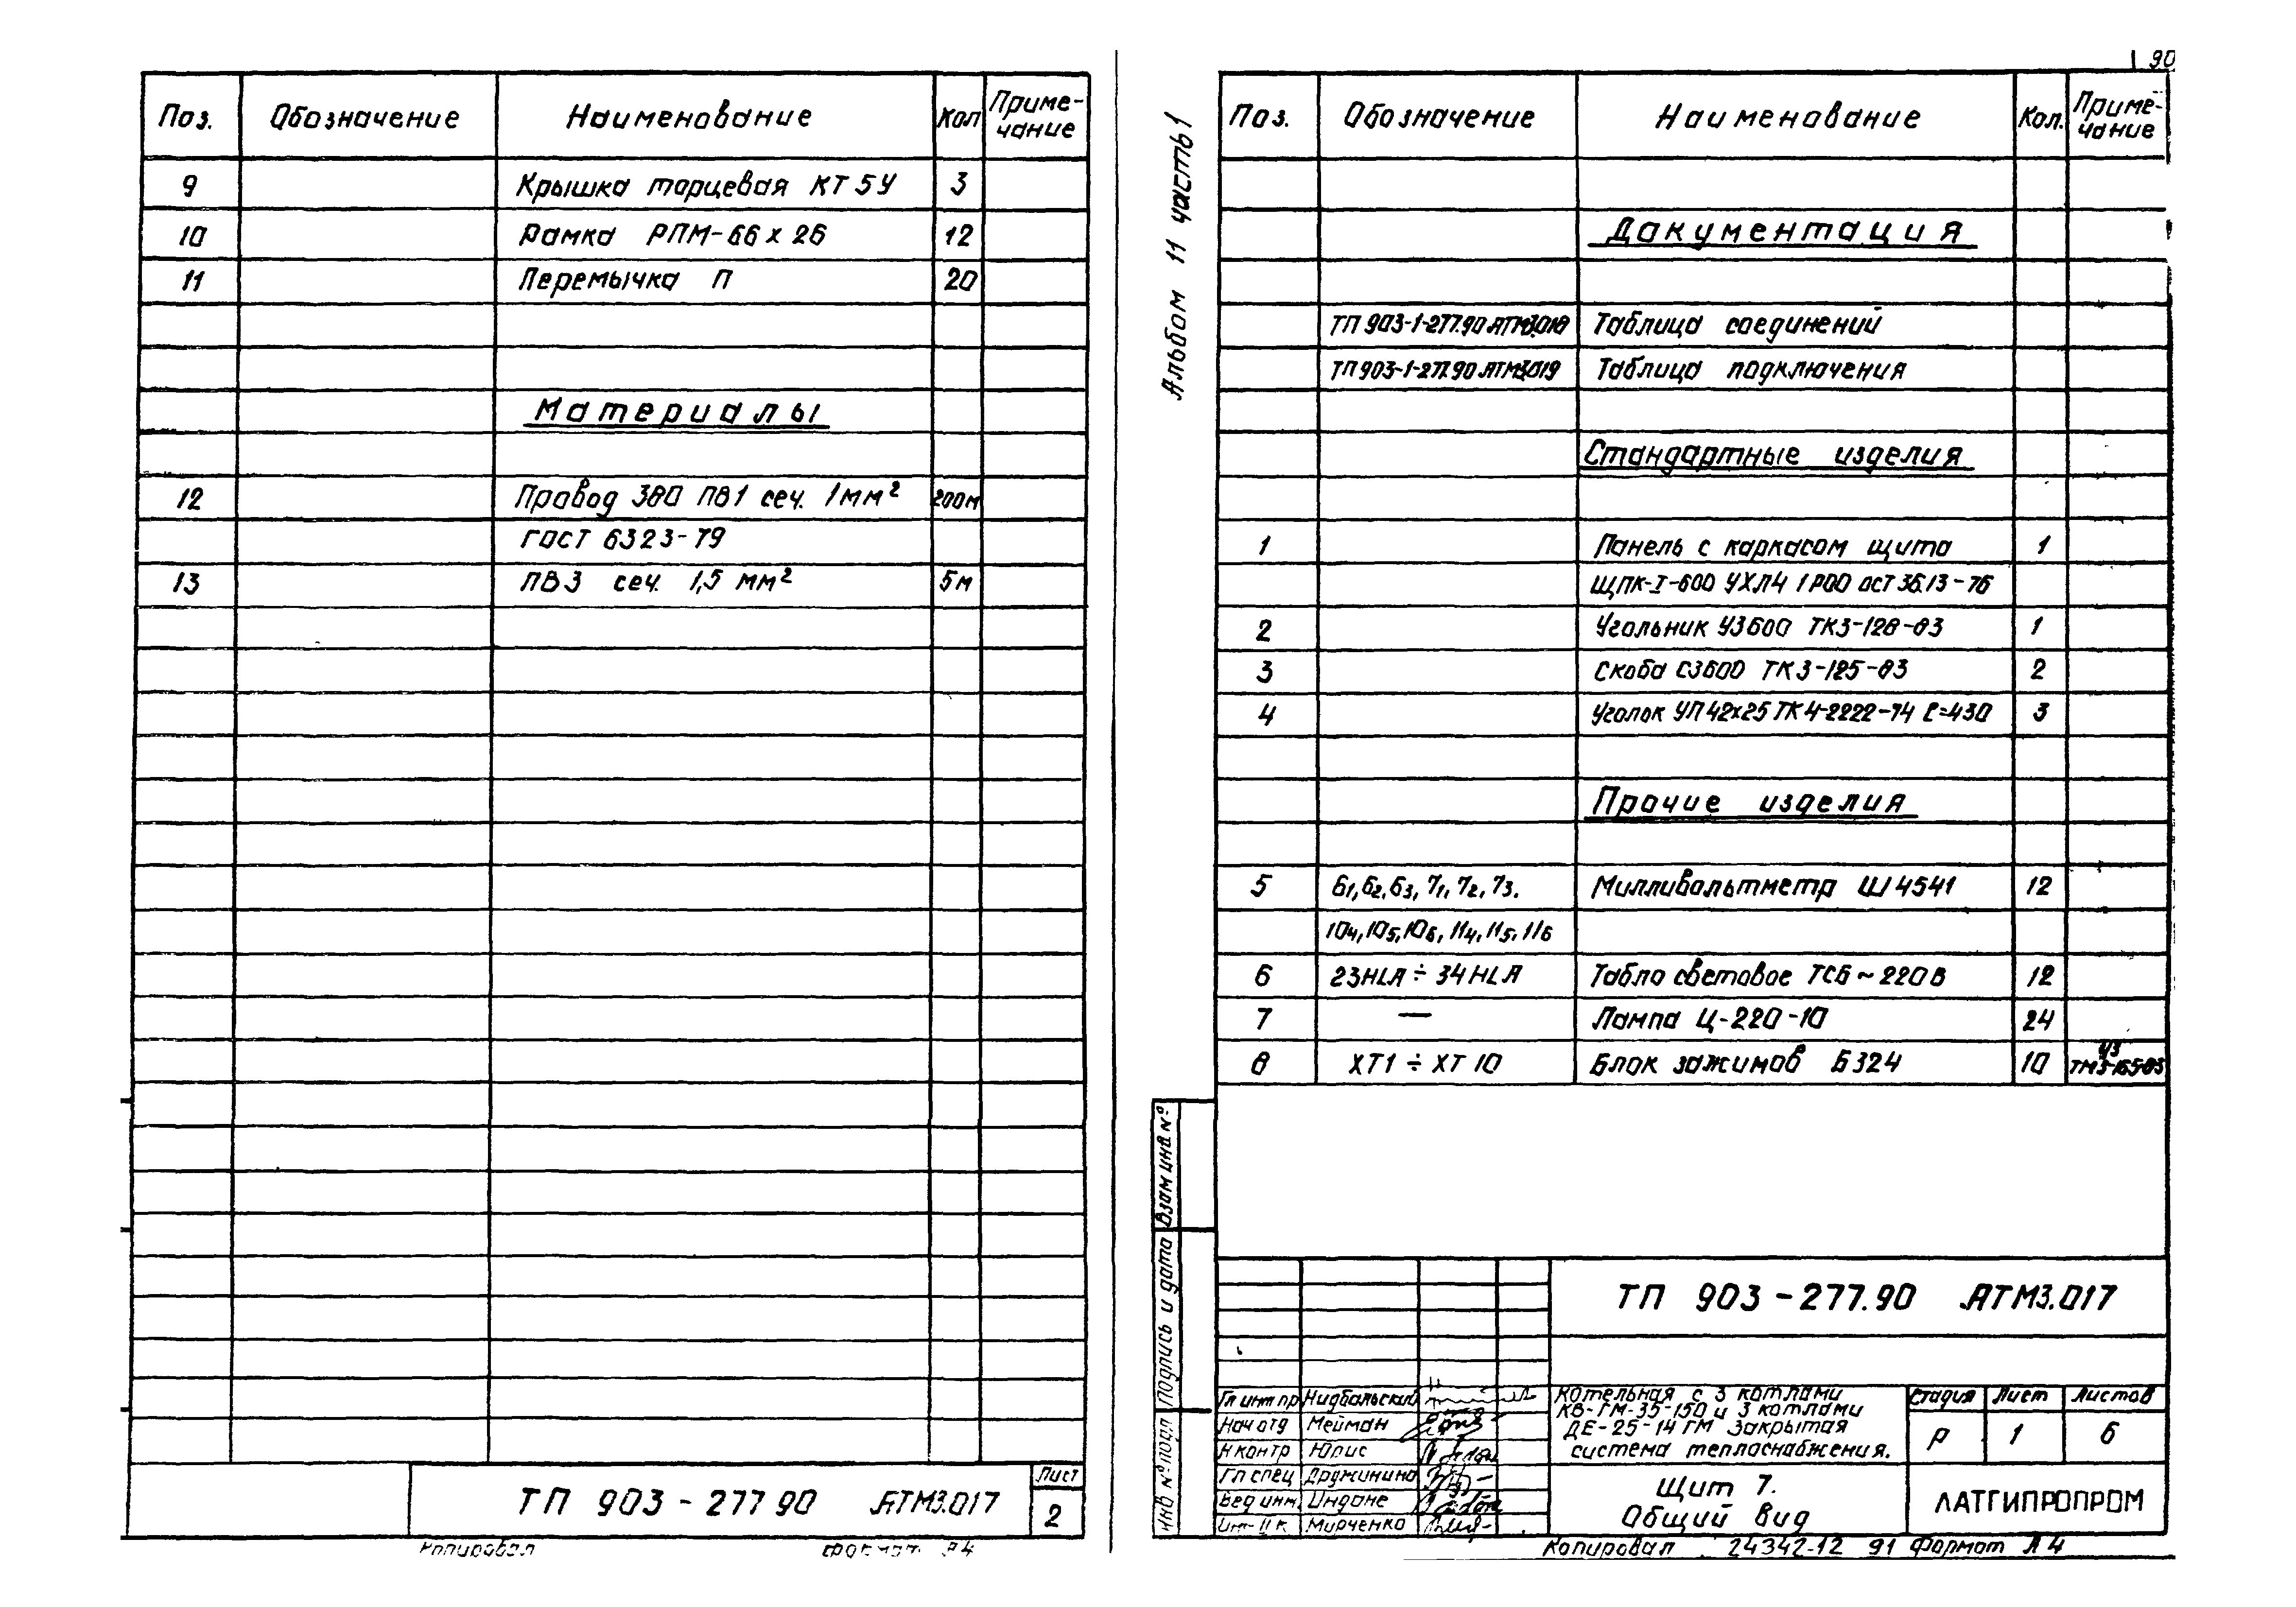 Поз. Обозначение Наименование Кол Приме-
чание
9 Крышка торцевая КТ5У 3
10 Рамка РПМ-66х26 12
11 Перемычка П 20
Материалы
12 Провод 380 ПВ1 сеч. 1мм² 200м
ГОСТ 6323-79
13 ПВ3 сеч. 1,5 мм² 5м
ТП 903-277.90 АТМ3.017
Лист
2
Копировал формат А4
90
Альбом 11 часть1
Поз. Обозначение Наименование Кол. Приме-
чание
Документация
ТП 903-1-277.90 АТМ3.018 Таблица соединений
ТП 903-1-277.90 АТМ3.019 Таблица подключения
Стандартные изделия
1 Панель с каркасом щита 1
ЩПК-I-600 УХЛ4 IP00 ОСТ 36.13-76
2 Угольник УЗ600 ТК3-128-83 1
3 Скоба СЗ600 ТК3-125-83 2
4 Уголок УП 42х25 ТК4-2222-74 ℓ=430 3
Прочие изделия
5 6₁, 6₂, 6₃, 7₁, 7₂, 7₃. Милливольтметр Ш4541 12
10₄, 10₅, 10₆, 11₄, 11₅, 11₆
6 23HLA ÷ 34HLA Табло световое ТСБ ~ 220В 12
7 — Лампа Ц-220-10 24
8 ХТ1 ÷ ХТ10 Блок зажимов Б324 10 УЗ
ТМ3-165-83
Взам инв №
Подпись и дата
Инв № подл
ТП 903-277.90 АТМ3.017
Гл инж пр Нидбальский
Нач отд Мейман
Н контр Юпис
Гл спец Дружинина
Вед инж. Индане
Инж II к Мирченко
Котельная с 3 котлами
КВ-ГМ-35-150 и 3 котлами
ДЕ-25-14ГМ Закрытая
система теплоснабжения.
Стадия Лист Листов
Р 1 6
Щит 7.
Общий вид
ЛАТГИПРОПРОМ
Копировал 24342-12 91 Формат А4